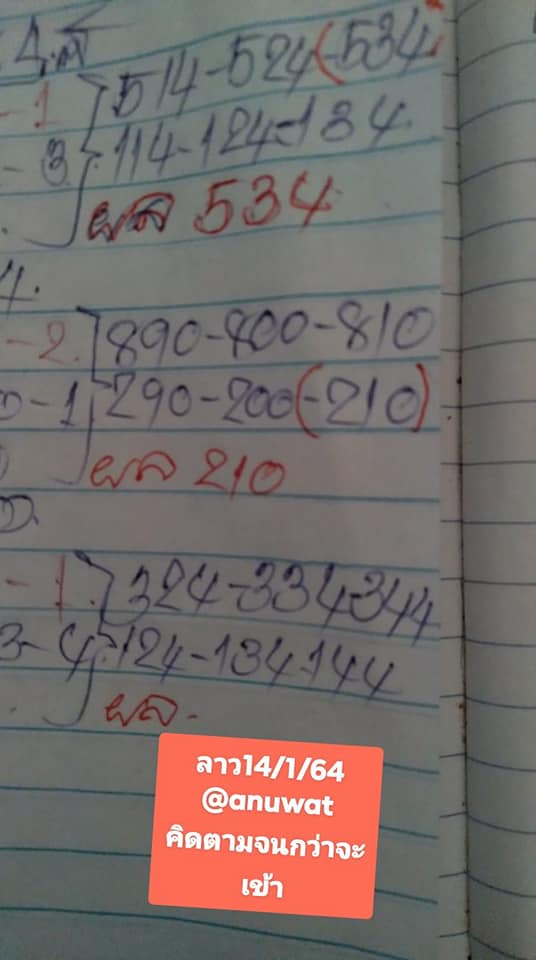 514-524(-534
- 1
114-124-134
- 3
ผล 534
4.
- 2. 890-800-810
- 1 290-200(-210)
ผล 210
- 1. 324-334-344
3-4 124-134-144
ผล.-
ลาว14/1/64
@anuwat
คิดตามจนกว่าจะ
เข้า